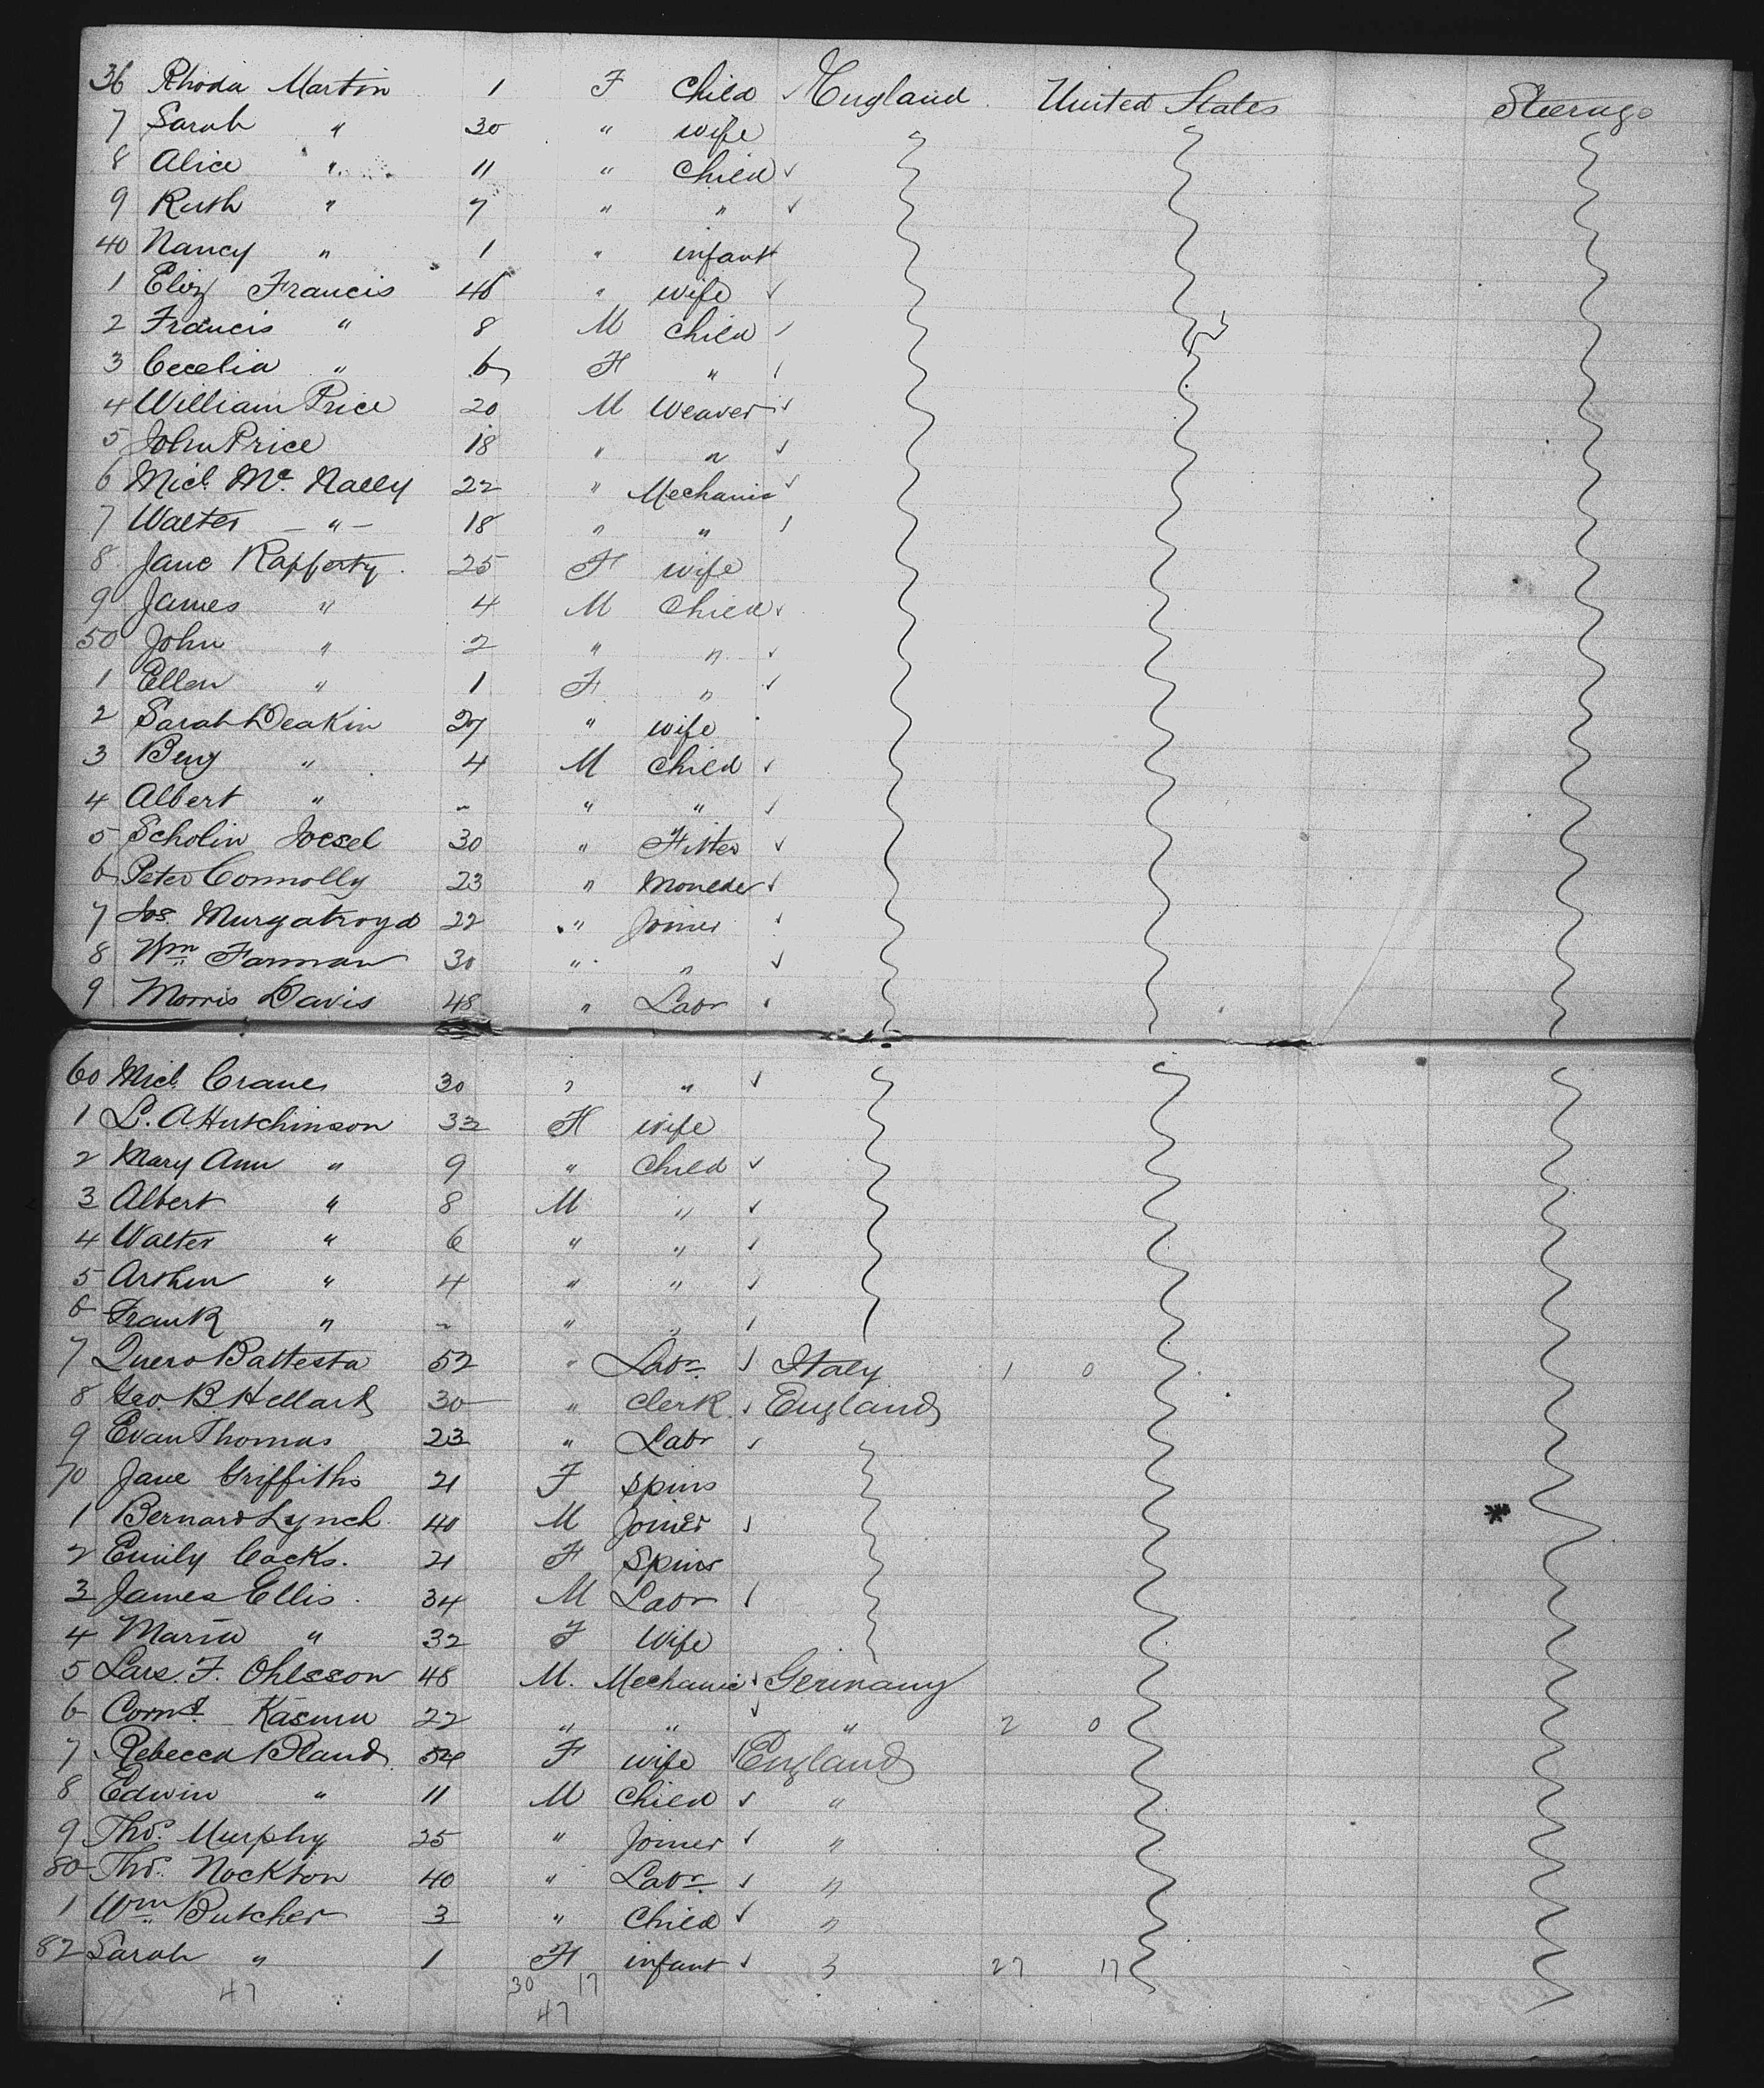 36 Rhoda Martin 1 F Child England United States Steerage
7 Sarah " 30 " wife
8 Alice " 11 " Child ✓
9 Ruth " 7 " " ✓
40 Nancy " 1 " infant
1 Eliz Francis 46 " wife ✓
2 Francis " 8 M Child ✓
3 Cecelia " 6 F " ✓
4 William Price 20 M Weaver ✓
5 John Price 18 " " ✓
6 Micl. Mc. Nally 22 " Mechanic ✓
7 Walter - " - 18 " " ✓
8 Jane Rafferty 25 F wife
9 James " 4 M Child ✓
50 John " 2 " " ✓
1 Ellen " 1 F " ✓
2 Sarah Deakin 27 " wife
3 Benj " 4 M Child ✓
4 Albert " - " " ✓
5 Scholin Joesel 30 " Fitter ✓
6 Peter Connolly 23 " Moulder ✓
7 Jos. Murgatroyd 22 " Joiner ✓
8 Wm Farman 30 " " ✓
9 Morris Davis 48 " Labr ✓
60 Micl. Crane 30 " " ✓
1 L. A. Hutchinson 33 F wife
2 Mary Ann " 9 " Child ✓
3 Albert " 8 M " ✓
4 Walter " 6 " " ✓
5 Arthur " 4 " " ✓
6 Frank " - " " ✓
7 Quero Battesta 52 " Labr ✓ Italy 1 0
8 Geo. B Hellark 30 " Clerk ✓ England
9 Evan Thomas 23 " Labr ✓
70 Jane Griffiths 21 F Spins
1 Bernard Lynch 40 M Joiner ✓
2 Emily Cocks. 21 F Spins
3 James Ellis 34 M Labr ✓
4 Maria " 32 F Wife
5 Lars. F. Ohlsson 48 M. Mechanic ✓ Germany
6 Corns. Kasuru 22 " " ✓ " 2 0
7 Rebecca Bland 54 F wife ✓ England
8 Edwin " 11 M Child ✓ "
9 Thos. Murphy 25 " Joiner ✓ "
80 Thos. Nockton 40 " Labr ✓ "
1 Wm Butcher 3 " Child ✓ "
82 Sarah " 1 F infant ✓ " 27 17
47 30 17
47